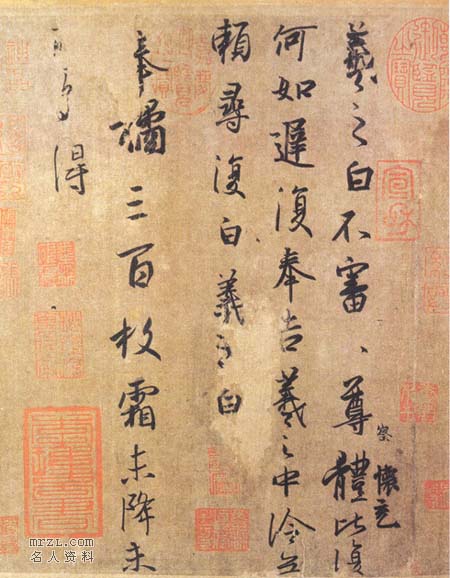 羲之白不審、尊體比復
察
懷充
何如遲復奉告羲之中冷無
賴尋復白羲之白
奉橘三百枚霜未降未
可多得
mrzl.com
名人资料